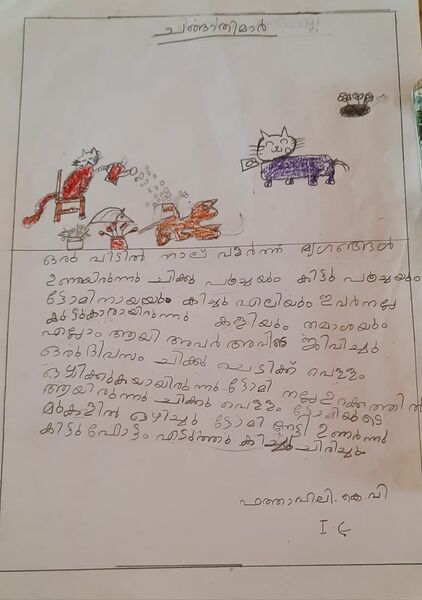 ചങ്ങാതിമാർ
ഒരു വീടിൽ നാല് വളർത്ത് മൃഗങ്ങൾ
ഉണ്ടായിരുന്നു ചിക്കു പൂച്ചയും കിട്ടു പൂച്ചയും
ടോമിനായയും കിച്ചു എലിയും ഇവർ നല്ല
കൂട്ടുകാരായിരുന്നു കളിയും തമാശയും
എല്ലാം ആയി അവർ അവിടെ ജീവിച്ചു
ഒരു ദിവസം ചിക്കു ചെടിക്ക് വെള്ളം
ഒഴിക്കുകയായിരുന്നു ടോമി നല്ല ഉറക്കത്തിൽ
ആയിരുന്നു ചിക്കു വെള്ളം ടോമിയുടെ
മുകളിൽ ഒഴിച്ചു ടോമി ഞെട്ടി ഉണർന്നു
കിട്ടു ഫോട്ടം എടുത്തു കിച്ചു ചിരിച്ചു
കെ.വി